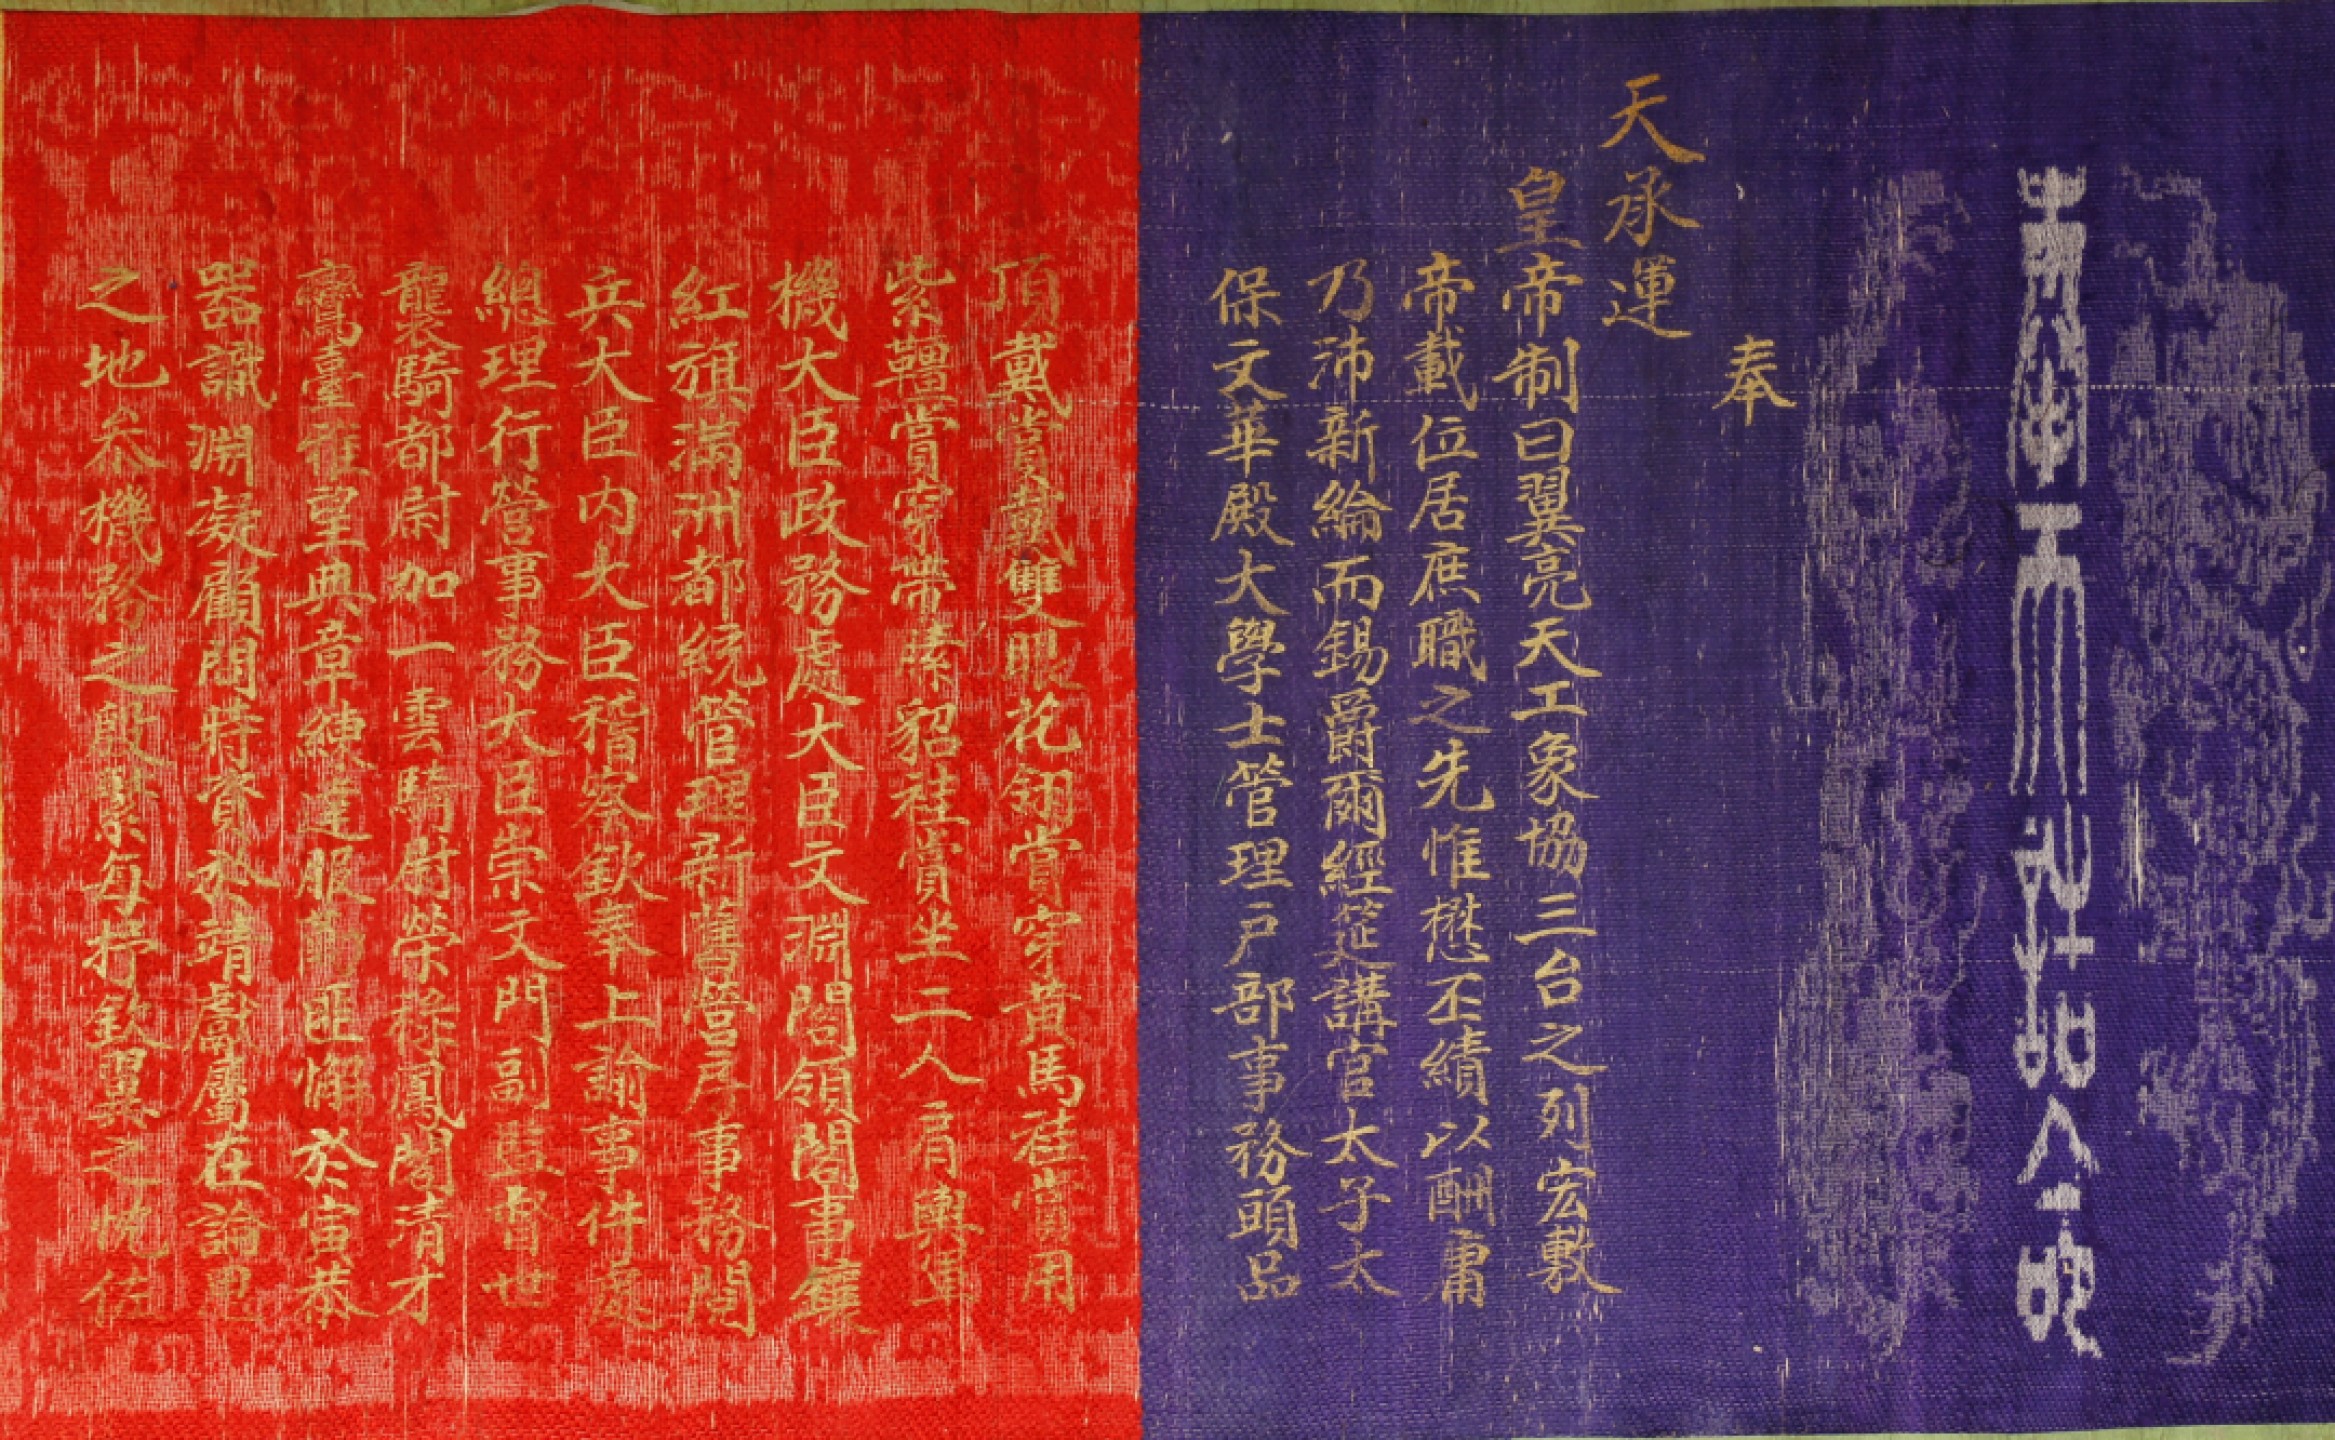 奉天誥命
奉
天承運
皇帝制曰翼亮天工象協三台之列宏敷
帝載位居庶職之先惟懋丕績以酬庸
乃沛新綸而錫爵爾經筵講官太子太
保文華殿大學士管理戶部事務頭品
頂戴賞戴雙眼花翎賞穿黃馬褂賞用
紫韁賞穿帶嗉貂褂賞坐二人肩輿軍
機大臣政務處大臣文淵閣領閣事鑲
紅旗滿洲都統管理新舊營房事務閱
兵大臣內大臣稽察欽奉上諭事件處
總理行營事務大臣崇文門副監督世
襲騎都尉加一雲騎尉榮祿鳳閣清才
鸞臺雅望典章練達服勤匪懈於寅恭
器識淵凝顧問特資於靖獻屬在論思
之地參機務之殷繁每抒欽翼之忱佐